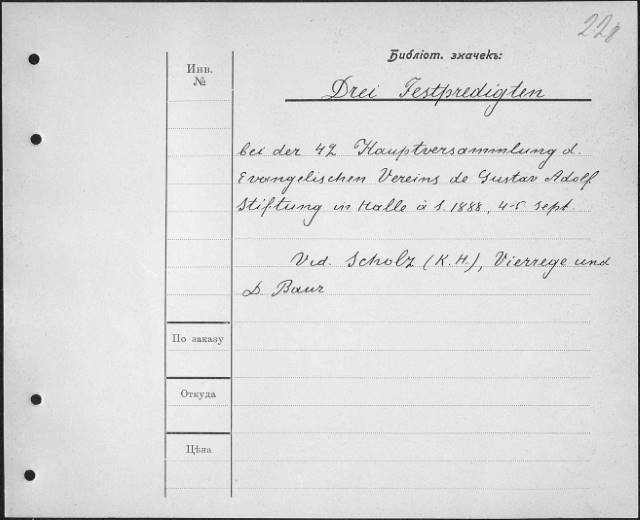 228
Библіот. значекъ:
Инв.
№
Drei Festpredigten
bei der 42 Hauptversammlung d.
Evangelischen Vereins de Gustav Adolf
Stiftung in Halle à S. 1888, 4-5 Sept.
Vid. Scholz (K. H.), Vierrege und
D. Baur
По заказу
Откуда
Цѣна